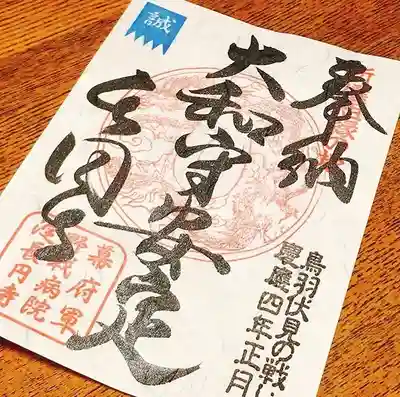 誠
奉納
大和守安定
長円寺
鳥羽伏見の戦い
慶應四年正月
幕府軍
野戦病院
淀長円寺